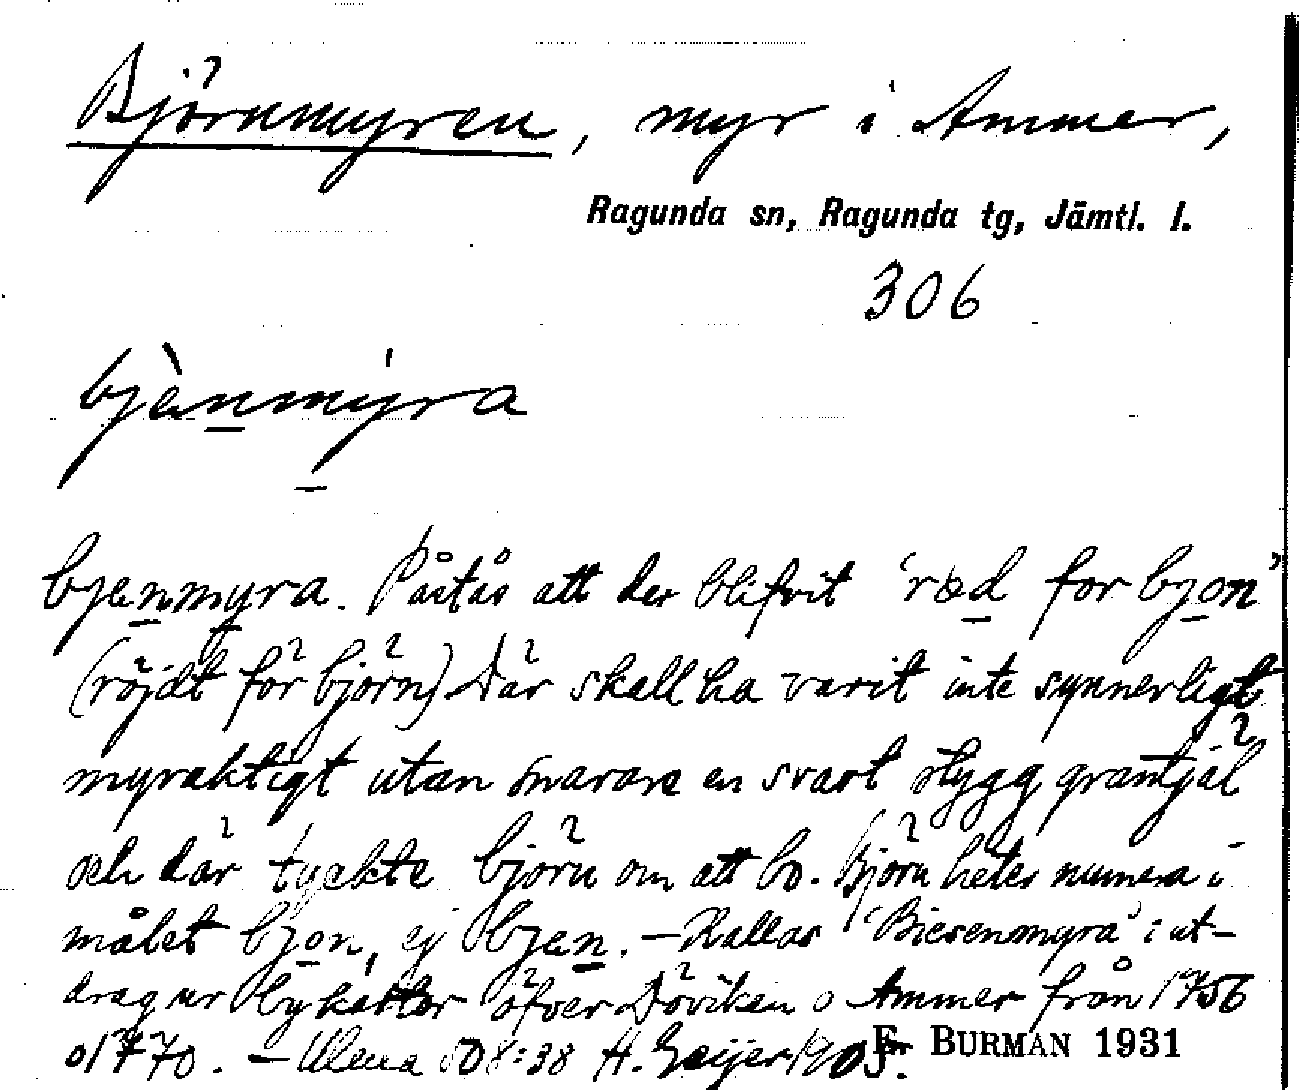 Björnmyren, myr i Ammer,
Ragunda sn, Ragunda tg, Jämtl. l.
306
bjènmýra
bjenmyra. Påstås att der blifvit 'rød for bjon'
(röjdt för björn) Där skall ha varit inte synnerligt
myraktigt utan snarare en svart stygg grantjäl
och där tyckte björn om att bo. Björn hetes numera i
målet bjon, ej bjen. – Kallas 'Bierenmyra' i ut-
drag ur bykartor öfver Döviken o Ammer från 1756
o 1770. – Ulma 508:38 H. Geijer 1905.
F. BURMAN 1931